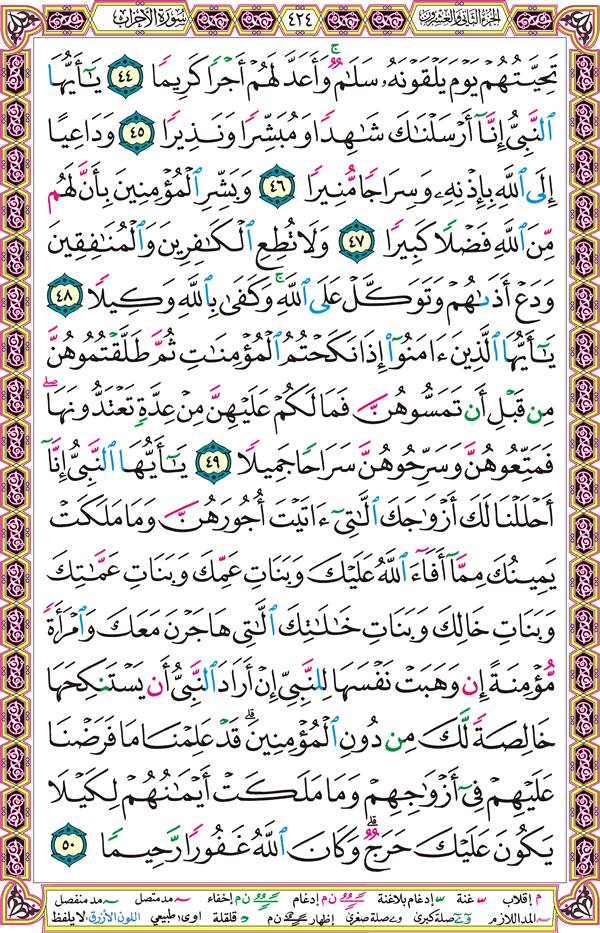 الجزء الثاني والعشرون ٤٢٤ سورة الأحزاب
تَحِيَّتُهُمْ يَوْمَ يَلْقَوْنَهُۥ سَلَٰمٌۭ ۚ وَأَعَدَّ لَهُمْ أَجْرًۭا كَرِيمًۭا ٤٤ يَٰٓأَيُّهَا
ٱلنَّبِىُّ إِنَّآ أَرْسَلْنَٰكَ شَٰهِدًۭا وَمُبَشِّرًۭا وَنَذِيرًۭا ٤٥ وَدَاعِيًا
إِلَى ٱللَّهِ بِإِذْنِهِۦ وَسِرَاجًۭا مُّنِيرًۭا ٤٦ وَبَشِّرِ ٱلْمُؤْمِنِينَ بِأَنَّ لَهُم
مِّنَ ٱللَّهِ فَضْلًۭا كَبِيرًۭا ٤٧ وَلَا تُطِعِ ٱلْكَٰفِرِينَ وَٱلْمُنَٰفِقِينَ
وَدَعْ أَذَىٰهُمْ وَتَوَكَّلْ عَلَى ٱللَّهِ ۚ وَكَفَىٰ بِٱللَّهِ وَكِيلًۭا ٤٨
يَٰٓأَيُّهَا ٱلَّذِينَ ءَامَنُوٓا۟ إِذَا نَكَحْتُمُ ٱلْمُؤْمِنَٰتِ ثُمَّ طَلَّقْتُمُوهُنَّ
مِن قَبْلِ أَن تَمَسُّوهُنَّ فَمَا لَكُمْ عَلَيْهِنَّ مِنْ عِدَّةٍۢ تَعْتَدُّونَهَا ۖ
فَمَتِّعُوهُنَّ وَسَرِّحُوهُنَّ سَرَاحًۭا جَمِيلًۭا ٤٩ يَٰٓأَيُّهَا ٱلنَّبِىُّ إِنَّآ
أَحْلَلْنَا لَكَ أَزْوَٰجَكَ ٱلَّٰتِىٓ ءَاتَيْتَ أُجُورَهُنَّ وَمَا مَلَكَتْ
يَمِينُكَ مِمَّآ أَفَآءَ ٱللَّهُ عَلَيْكَ وَبَنَاتِ عَمِّكَ وَبَنَاتِ عَمَّٰتِكَ
وَبَنَاتِ خَالِكَ وَبَنَاتِ خَٰلَٰتِكَ ٱلَّٰتِى هَاجَرْنَ مَعَكَ وَٱمْرَأَةًۭ
مُّؤْمِنَةً إِن وَهَبَتْ نَفْسَهَا لِلنَّبِىِّ إِنْ أَرَادَ ٱلنَّبِىُّ أَن يَسْتَنكِحَهَا
خَالِصَةًۭ لَّكَ مِن دُونِ ٱلْمُؤْمِنِينَ ۗ قَدْ عَلِمْنَا مَا فَرَضْنَا
عَلَيْهِمْ فِىٓ أَزْوَٰجِهِمْ وَمَا مَلَكَتْ أَيْمَٰنُهُمْ لِكَيْلَا
يَكُونَ عَلَيْكَ حَرَجٌۭ ۗ وَكَانَ ٱللَّهُ غَفُورًۭا رَّحِيمًۭا ٥٠
م إقلاب غنة إدغام بلاغنة ن م إدغام ن م إخفاء مد متصل مد منفصل
المد اللازم صلة كبرى صلة صغرى إظهار ن م قلقلة اوى طبيعي اللون الأزرق: لا يلفظ